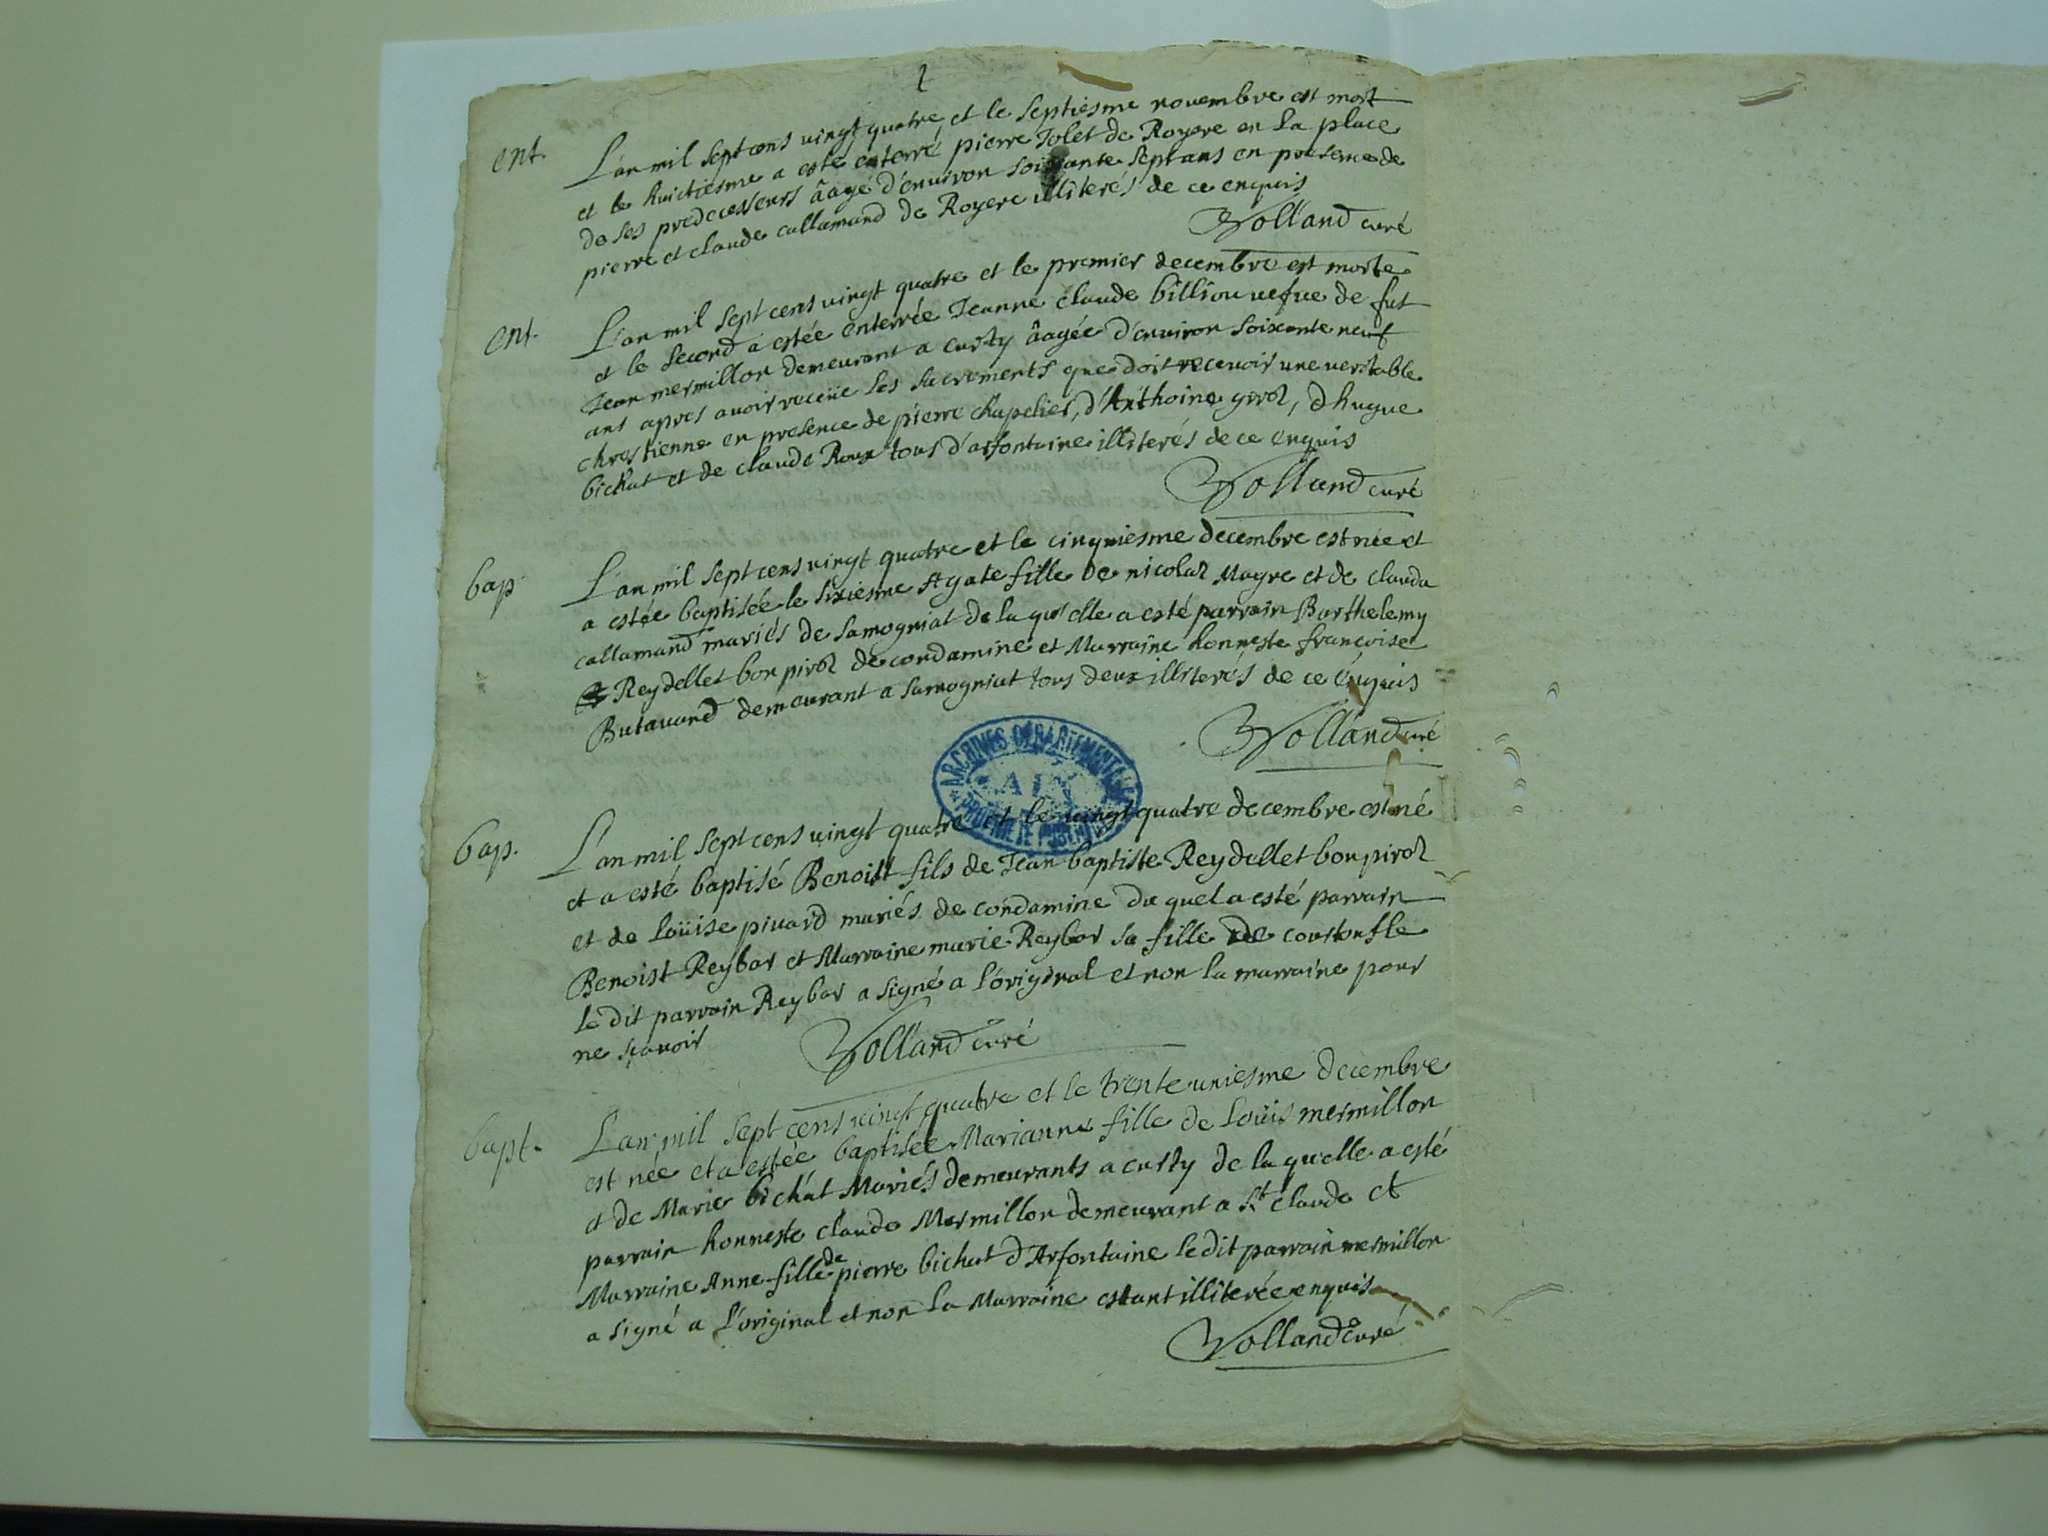 ent. L'an mil sept cens vingt quatre et le septiesme novembre est mort
et le huictiesme a esté enterré pierre Jolet de Royere en la place
de ses predecesseurs âagé d'environ soixante sept ans en presence de
pierre et claude callamand de Royere illiterés de ce enquis
Volland curé
ent. L'an mil sept cens vingt quatre et le premier decembre est morte
et le second a estée enterrée Jeanne claude billion vefve de fut
Jean mermillon demeurant a custy âagée d'environ soixante neuf
ans apres avoir receüe les sacrements que doit recevoir une veritable
chrestienne en presence de pierre chapelier, d'Anthoine girod, d'hugue
bichat et de claude Roux tous d'arfontaine illiterés de ce enquis
Volland curé
bap. L'an mil sept cens vingt quatre et le cinquiesme decembre est née et
a estée baptisée le sixiesme Agate fille de nicolas Magre et de clauda
callamand mariés de samogniat de la quelle a esté parrain Barthelemy
Reydellet bon pirod de condamine et Marraine honneste francoise
Butavand demeurant a samogniat tous deux illiterés de ce énquis
Volland curé
ARCHIVES DÉPARTEMENTALES
AIN
PROPRIÉTÉ PUBLIQUE
bap. L'an mil sept cens vingt quatre et le vingt quatre decembre est né
et a esté baptisé Benoist fils de Jean baptiste Reydellet bon pirod
et de Loüise pivard mariés de condamine du quel a esté parrain
Benoist Reybas et Marraine marie Reybas sa fille de coustoufle
le dit parrain Reybas a signé a l'original et non la marraine pour
ne sçavoir Volland curé
bapt. L'an mil sept cens vingt quatre et le trente uniesme decembre
est née et a estée baptisée Marianne fille de Loüis mermillon
et de Marie bichat Mariés demeurants a custy de la quelle a esté
parrain honneste claude Mermillon demeurant a st claude et
Marraine Anne fille de pierre bichat d'Arfontaine le dit parrain mermillon
a signé a l'original et non la Marraine estant illiterée enquise
Volland curé